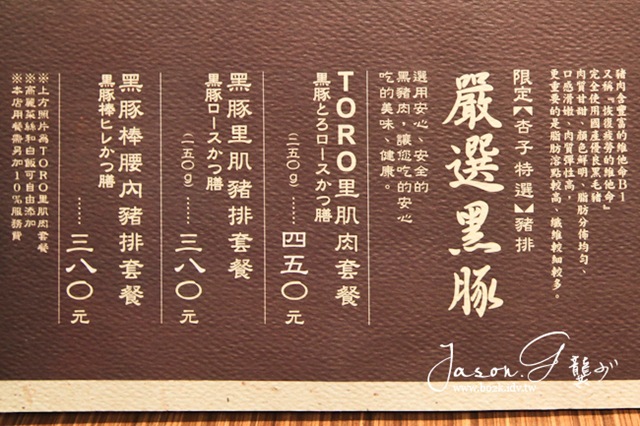 豬肉含豐富的維他命B1
又稱『恢復疲勞的維他命』
完全使用國產優良黑毛豬
肉質甘甜、顏色鮮明、脂肪分佈均勻、
口感滑嫩、肉質彈性高，
更重要的是脂肪溶點較高、纖維較細較多。
限定【杏子特選】豬排
嚴選黑豚
選用安心、安全的
黑豬肉，讓您吃的安心
吃的美味、健康。
TORO里肌肉套餐
黒豚とろロースかつ膳
(二五０g)……四五０元
黑豚里肌豬排套餐
黒豚ロースかつ膳
(一五０g)……三八０元
黑豚棒腰內豬排套餐
黒豚棒ヒレかつ膳
……三八０元
※上方照片為TORO里肌肉套餐
※高麗菜絲和白飯可自由添加
※本店用餐需另加10%服務費
Jason.G 龔
www.bozkadv.tw